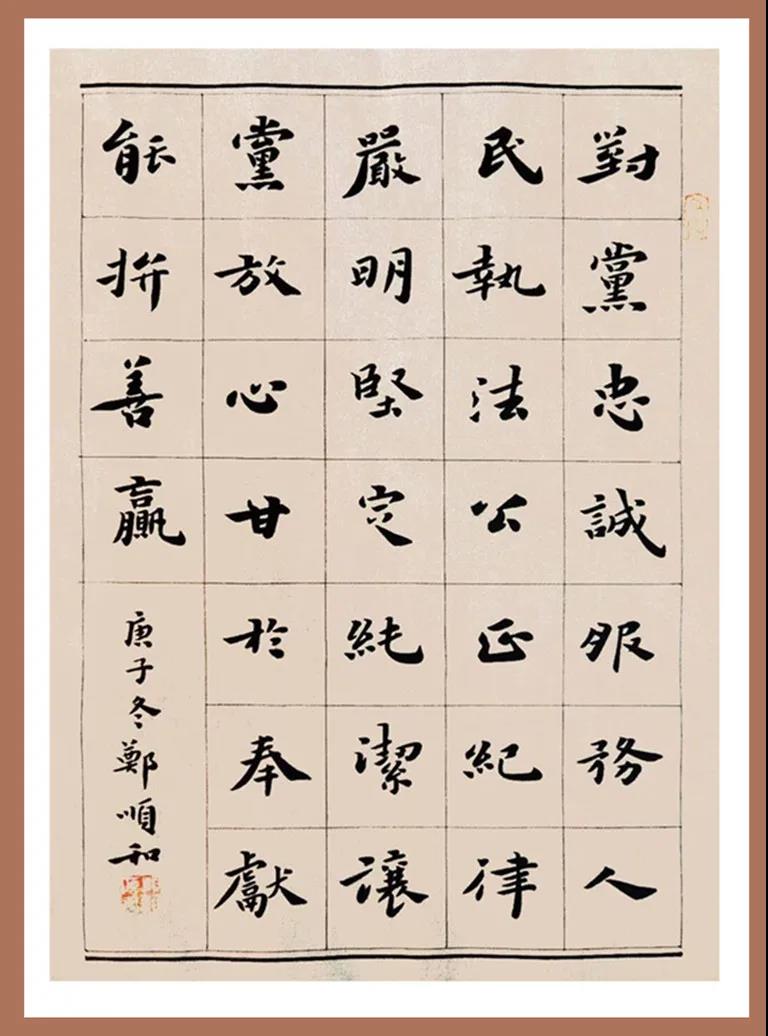 對黨忠誠服務人
民執法公正紀律
嚴明堅定純潔讓
黨放心甘於奉獻
能拚善贏
庚子冬鄭順和